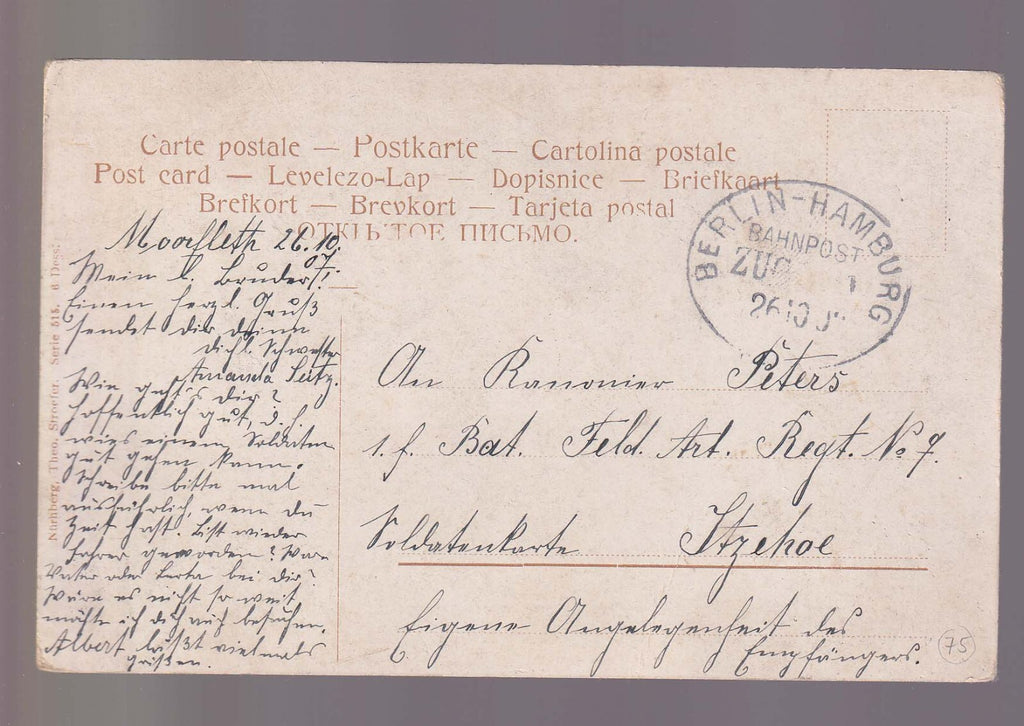 Carte postale — Postkarte — Cartolina postale
Post card — Levelezo-Lap — Dopisnice — Briefkaart
Brefkort — Brevkort — Tarjeta postal
ОТКРЫТОЕ ПИСЬМО.
BERLIN-HAMBURG
BAHNPOST
ZUG 1
26 10
Nürnberg, Theo. Stroefer. Serie 515. 6 Dess.
Moorfleth 26.10.
07.
Mein l. Bruder!
Einen herzl. Gruß
sendet dir deine
dichl. Schwester
Amanda
Wie geht's dir?
hoffentlich gut, d. h.
wies einem Soldaten
gut gehen kann.
Schreibe bitte mal
ausführlich, wenn du
Zeit hast. Bist wieder
Fahrer geworden? War
Vater oder bei dir?
Wäre es nicht so weit
möchte ich dich auch besuchen.
Albert läßt vielmals
grüßen.
An Kanonier Peters
1. f. Bat. Feld. Art. Regt. No 9.
Soldatenkarte Itzehoe
Eigene Angelegenheit des
Empfängers.
75